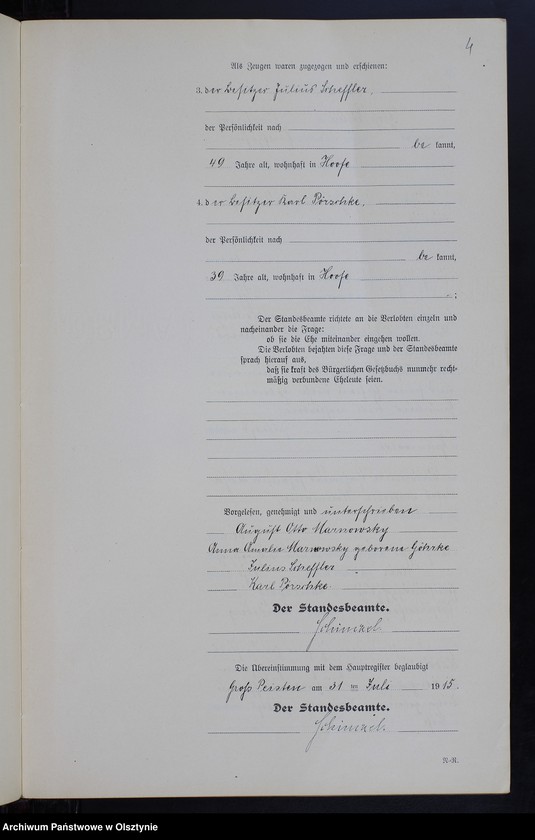 4
Als Zeugen waren zugezogen und erschienen:
3. der Besitzer Julius Scheffler.
der Persönlichkeit nach
be kannt,
49 Jahre alt, wohnhaft in Hoofe
4. der Besitzer Karl Pörschke.
der Persönlichkeit nach
be kannt,
39 Jahre alt, wohnhaft in Hoofe
Der Standesbeamte richtete an die Verlobten einzeln und
nacheinander die Frage:
ob sie die Ehe miteinander eingehen wollen.
Die Verlobten bejahten diese Frage und der Standesbeamte
sprach hierauf aus,
daß sie kraft des Bürgerlichen Gesetzbuchs nunmehr recht-
mäßig verbundene Eheleute seien.
Vorgelesen, genehmigt und unterschrieben
August Otto Marnowsky
Anna Amalie Marnowsky geborene Göhrke
Julius Scheffler
Karl Pörschke
Der Standesbeamte.
Schinzel
Die Übereinstimmung mit dem Hauptregister beglaubigt
Groß Peisten am 31 ten Juli 1915
Der Standesbeamte.
Schinzel
R.-R.
Archiwum Państwowe w Olsztynie